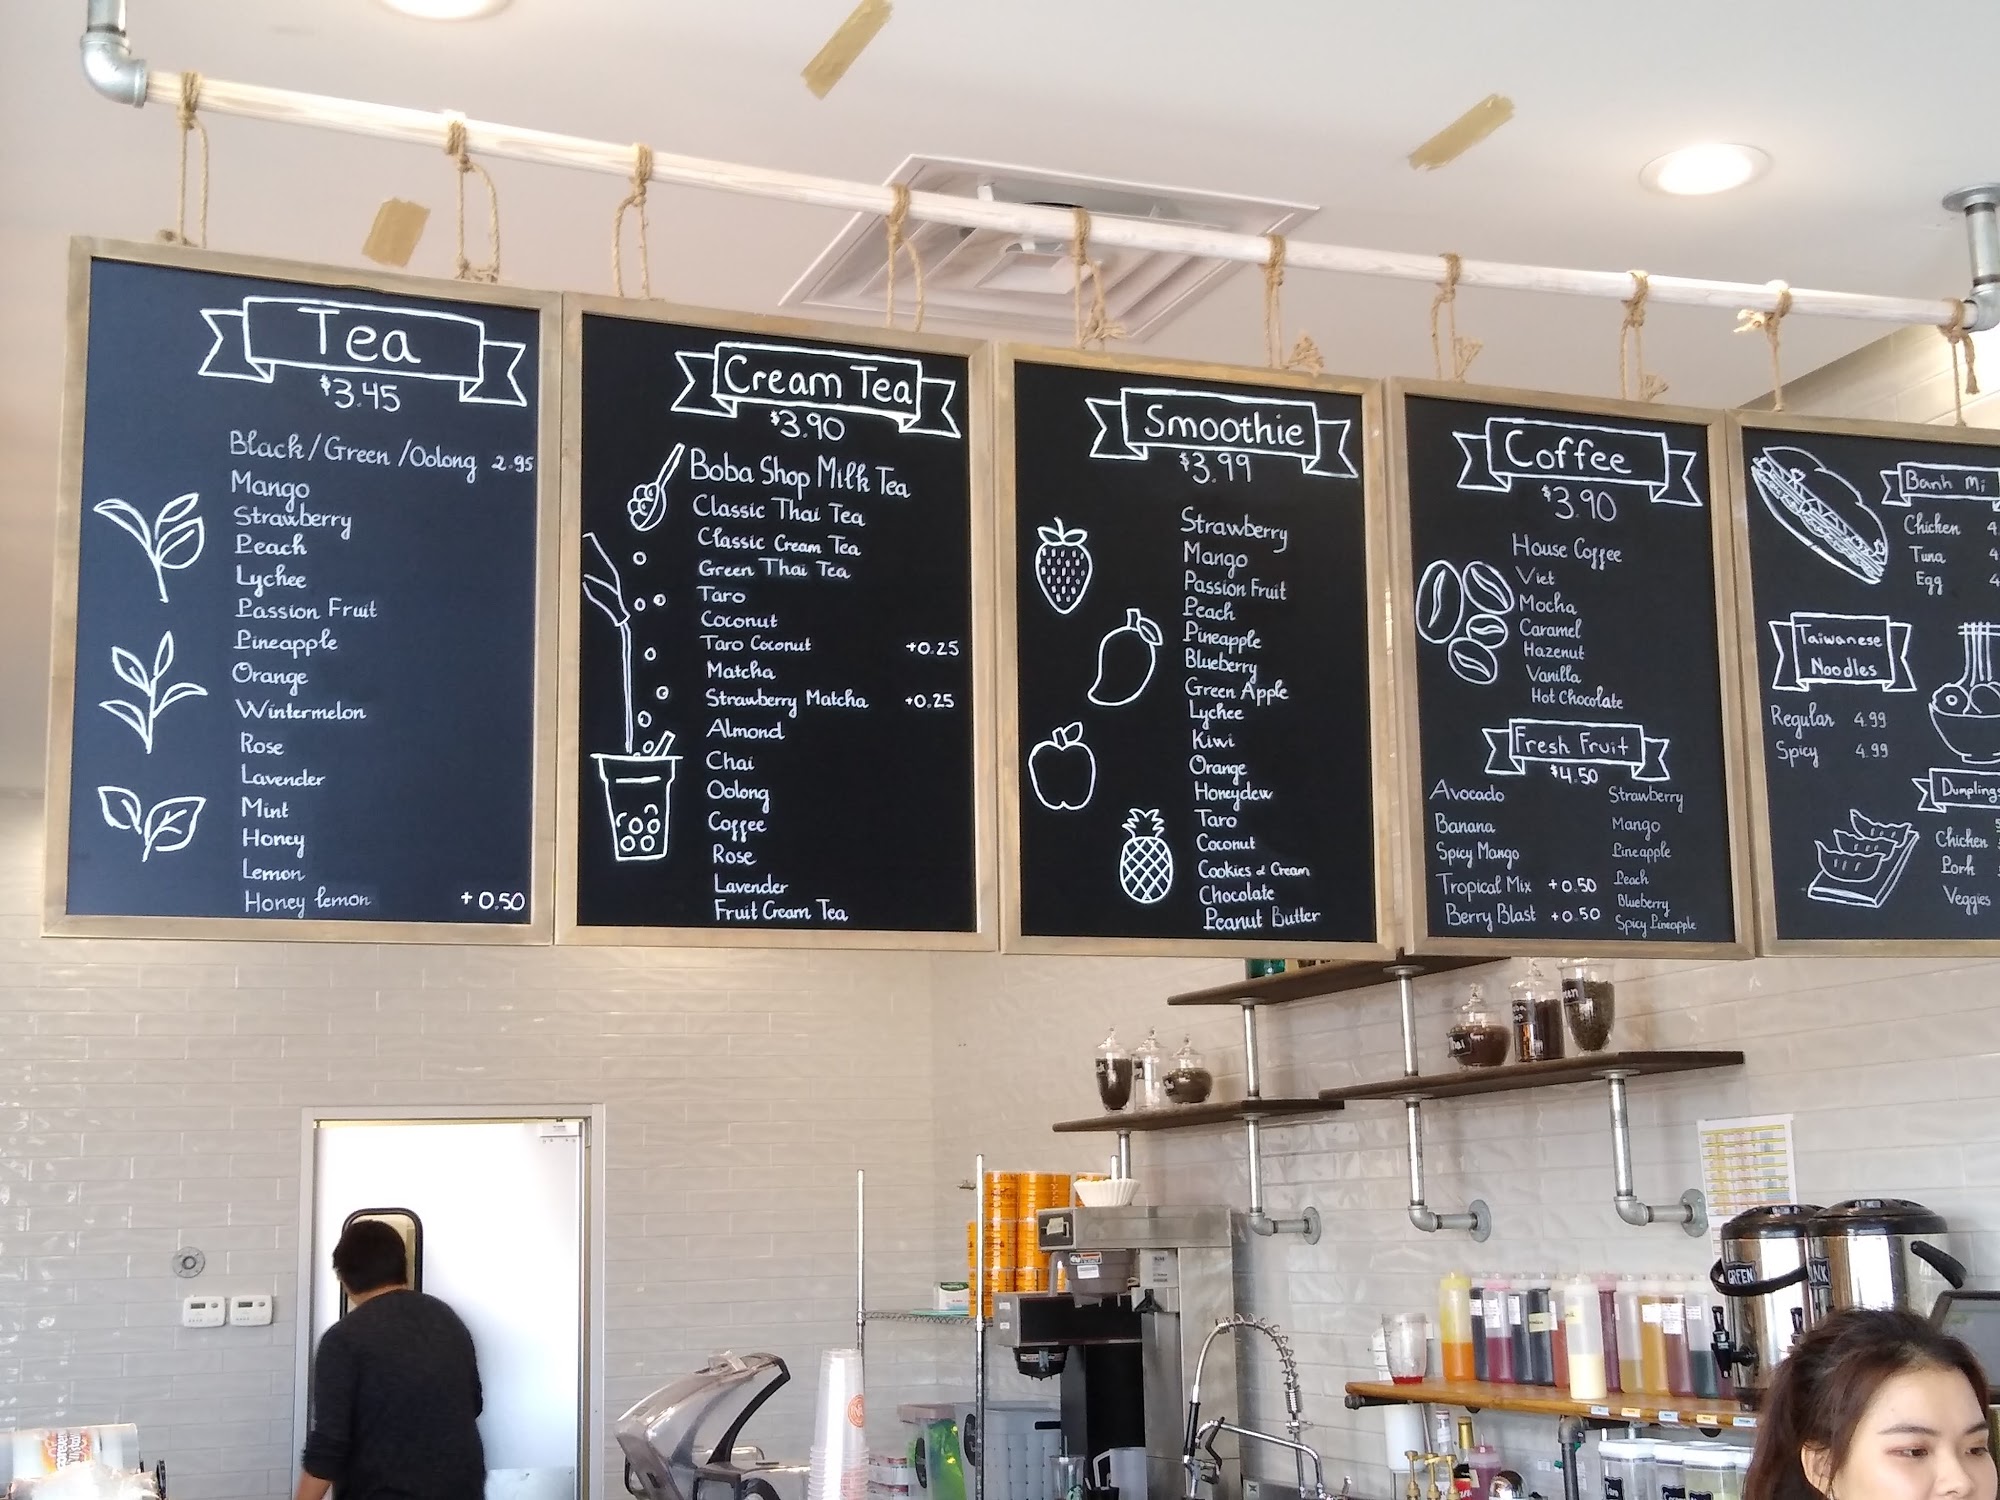 Tea
$3.45
Black/Green/Oolong 2.95
Mango
Strawberry
Peach
Lychee
Passion Fruit
Pineapple
Orange
Wintermelon
Rose
Lavender
Mint
Honey
Lemon
Honey lemon +0.50
Cream Tea
$3.90
Boba Shop Milk Tea
Classic Thai Tea
Classic Cream Tea
Green Thai Tea
Taro
Coconut
Taro Coconut +0.25
Matcha
Strawberry Matcha +0.25
Almond
Chai
Oolong
Coffee
Rose
Lavender
Fruit Cream Tea
Smoothie
$3.99
Strawberry
Mango
Passion Fruit
Peach
Pineapple
Blueberry
Green Apple
Lychee
Kiwi
Orange
Honeydew
Taro
Coconut
Cookies & Cream
Chocolate
Peanut Butter
Coffee
$3.90
House Coffee
Viet
Mocha
Caramel
Hazenut
Vanilla
Hot Chocolate
Fresh Fruit
$4.50
Avocado
Banana
Spicy Mango
Tropical Mix +0.50
Berry Blast +0.50
Strawberry
Mango
Pineapple
Peach
Blueberry
Spicy Pineapple
Banh Mi
Chicken 4.
Tuna 4
Egg 4
Taiwanese
Noodles
Regular 4.99
Spicy 4.99
Dumplings
Chicken
Pork
Veggies
GREEN